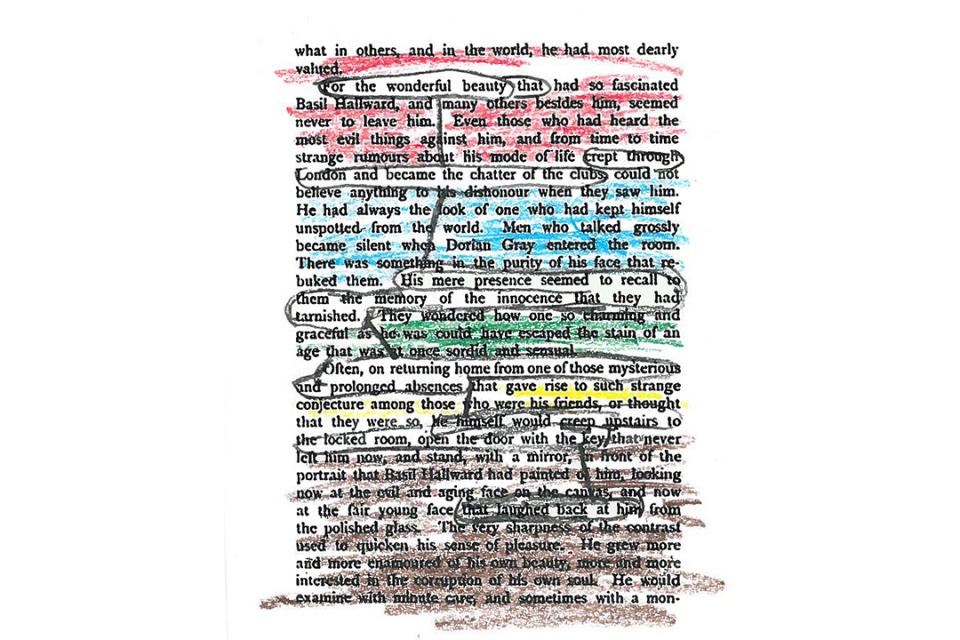 what in others, and in the world, he had most dearly
valued.
For the wonderful beauty that had so fascinated
Basil Hallward, and many others besides him, seemed
never to leave him. Even those who had heard the
most evil things against him, and from time to time
strange rumours about his mode of life crept through
London and became the chatter of the clubs, could not
believe anything to his dishonour when they saw him.
He had always the look of one who had kept himself
unspotted from the world. Men who talked grossly
became silent when Dorian Gray entered the room.
There was something in the purity of his face that re-
buked them. His mere presence seemed to recall to
them the memory of the innocence that they had
tarnished. They wondered how one so charming and
graceful as he was could have escaped the stain of an
age that was at once sordid and sensual.
Often, on returning home from one of those mysterious
and prolonged absences that gave rise to such strange
conjecture among those who were his friends, or thought
that they were so, he himself would creep upstairs to
the locked room, open the door with the key that never
left him now, and stand, with a mirror, in front of the
portrait that Basil Hallward had painted of him, looking
now at the evil and aging face on the canvas, and now
at the fair young face that laughed back at him from
the polished glass. The very sharpness of the contrast
used to quicken his sense of pleasure. He grew more
and more enamoured of his own beauty, more and more
interested in the corruption of his own soul. He would
examine with minute care, and sometimes with a mon-